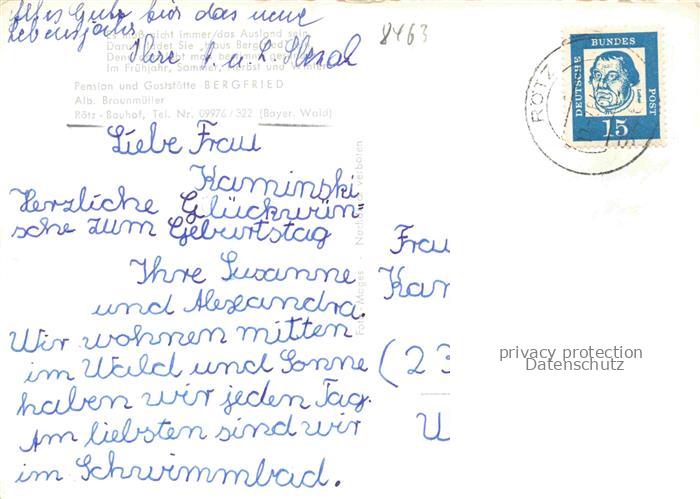 Alles Gute für das neue
Lebensjahr
Ihre
8463
nicht immer das Ausland sein
Im Frühjahr, Sommer, Herbst und Winter
Pension und Gaststätte BERGFRIED
Alb. Braunmüller
Rötz-Bauhof, Tel. Nr. 09976/322 (Bayer. Wald)
Liebe Frau
Kaminski
Herzliche Glückwün-
sche zum Geburtstag
Ihre Susanne
und Alexandra.
Wir wohnen mitten
im Wald und Sonne
haben wir jeden Tag.
Am liebsten sind wir
im Schwimmbad.
Foto Mages - Nachdruck verboten
RÖTZ
DEUTSCHE BUNDES POST
Luther
15
Frau
Kam
(23
U
privacy protection
Datenschutz